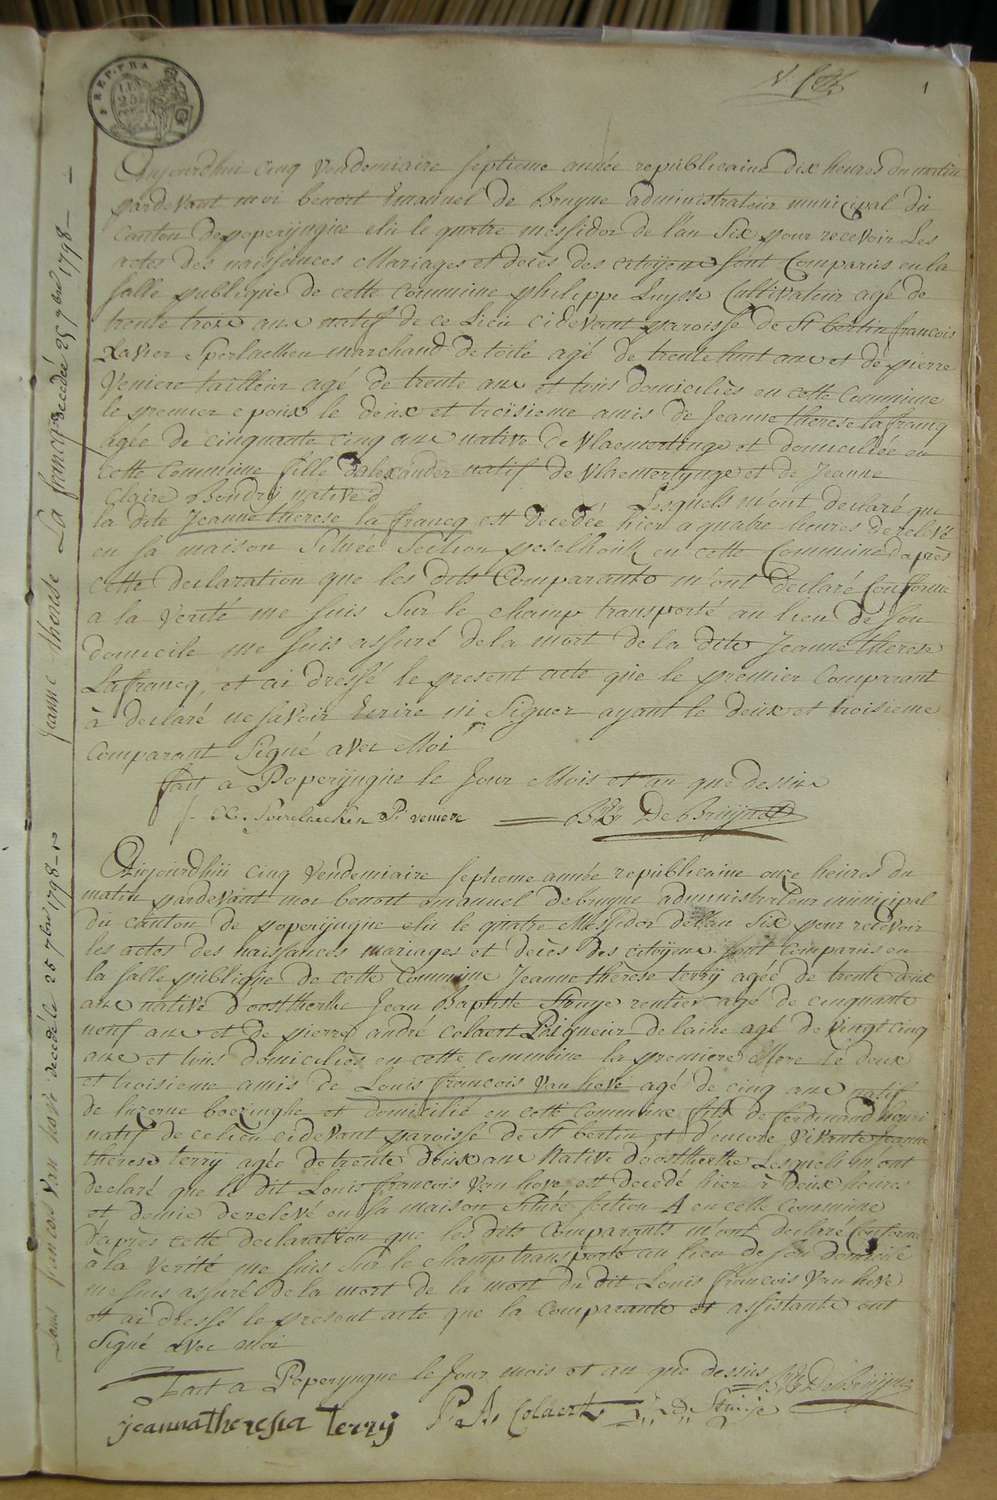 REP. FRA
1
Aujourdhui cinq Vendemiaire septieme année republicaine dix heures du matin
pardevant moi benoit Emanuel de Bruyne administrateur municipal du
Canton de poperijngue elu le quatre messidor de l'an Six pour recevoir les
actes des naissances Mariages et decès des citoijens sont Comparus en la
salle publique de cette commune philippe Luysse Cultivateur agé de
trente trois ans natif de ce Lieu cidevant paroisse de St bertin francois
Xavier Sperlaecken marchand de toile agé de trente huit ans et de pierre
Veniere tailleur agé de trente ans et tous domiciliès en cette Commune
le premier epoux le deux et troisieme amis de Jeanne therese lafrancq
agée de cinquante cinq ans native de Vlaemertinge et domiciliée en
cette Commune fille d'alexander natif de Vlaemertynge et de Jeanne
Claire Bendry native d Lesquels m'ont declaré que
la dite Jeanne therese la francq est decedée hier a quatre heures de relevé
en sa maison Situeé Section peselhoik en cette Commune d'après
cette declaration que les dits Comparants m'ont declaré Conforme
a la Verité me suis Sur le champ transporté au lieu de son
domicile me suis assuré de la mort de la dite Jeanne therese
Lafrancq, et ai dressé le present acte que le premier Comparant
à declaré ne savoir Ecrire ni Signer ayant le deux et troisieme
Comparant Signé avec Moi
fait a Poperijngue le Jour Mois et an que dessus
f. X. Sperlaecken P. veniere B E DeBruijne
Aujourdhui cinq Vendemiaire septieme année republicaine onze heures du
matin pardevant moi benoit emanuel debruyne administrateur municipal
du canton de poperijngue elu le quatre Messidor de l'an Six pour recevoir
les actes des naissances mariages et decès des citoijens sont Comparus en
la salle publique de cette Commune Jeanne thèrèse terrij agée de trente deux
ans native d'oostherke Jean Baptiste Struye rentier agé de cinquante
neuf ans et de pierre andré Colaert Peigneur de laine agé de vingt cinq
ans et tous domiciliès en cette commune la premiere Mere le deux
et troisieme amis de Louis francois Van hove agé de cinq ans natif
de luzerne boezinghe et domicilié en cette Commune fils de ferdinand
natif de ce lieu cidevant paroisse de St bertin et d'encore vivante Jeanne
thérese terry agée de trente deux ans Native d'oostherke Lesquels m'ont
declaré que le dit Louis francois Van hove est decedé hier a deux heures
et demie de relevé en sa maison Située section A en cette Commune
d'après cette declaration que les dits Comparants m'ont declaré Conforme
à la Verité me suis Sur le champ transporté au lieu de son domicile
me suis assuré de la mort de la mort du dit Louis francois Van hove
et ai dressé le present acte que la Comparante et assistants ont
Signé avec moi
Fait a Poperyngue le Jour mois et an que dessus B E DeBruijne
jeannatheresia terrij P. A. Colaert J. B. Struije
Jeanne therese La francq decedée 25 7bre 1798 —
Louis francois Van hove decedé le 25 7bre 1798